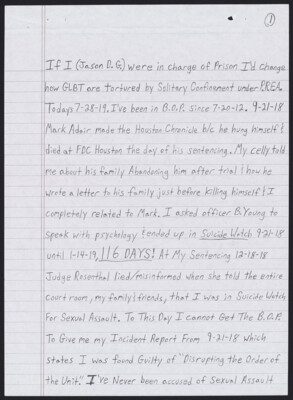 ①
If I (Jason D.G.) were in charge of Prison I'd change
how GLBT are tortured by Solitary Confinement under PREA.
Todays 7-28-19. I've been in B.O.P. since 7-20-12. 9-21-18
Mark Adair made the Houston Chronicle b/c he hung himself &
died at FDC Houston the day of his sentencing. My celly told
me about his family Abandoning him after trial & how he
wrote a letter to his family just before killing himself & I
completely related to Mark. I asked officer B. Young to
speak with psychology & ended up in Suicide Watch 9-21-18
until 1-14-19, 116 DAYS! At My Sentencing 12-18-18
Judge Rosenthal lied/misinformed when she told the entire
Court room, my family & friends, that I was in Suicide Watch
For Sexual Assault. To This Day I cannot Get The B.O.P.
To Give me my Incident Report From 9-21-18 which
states I was found Guilty of "Disrupting the Order of
the Unit." I've Never been accused of Sexual Assault